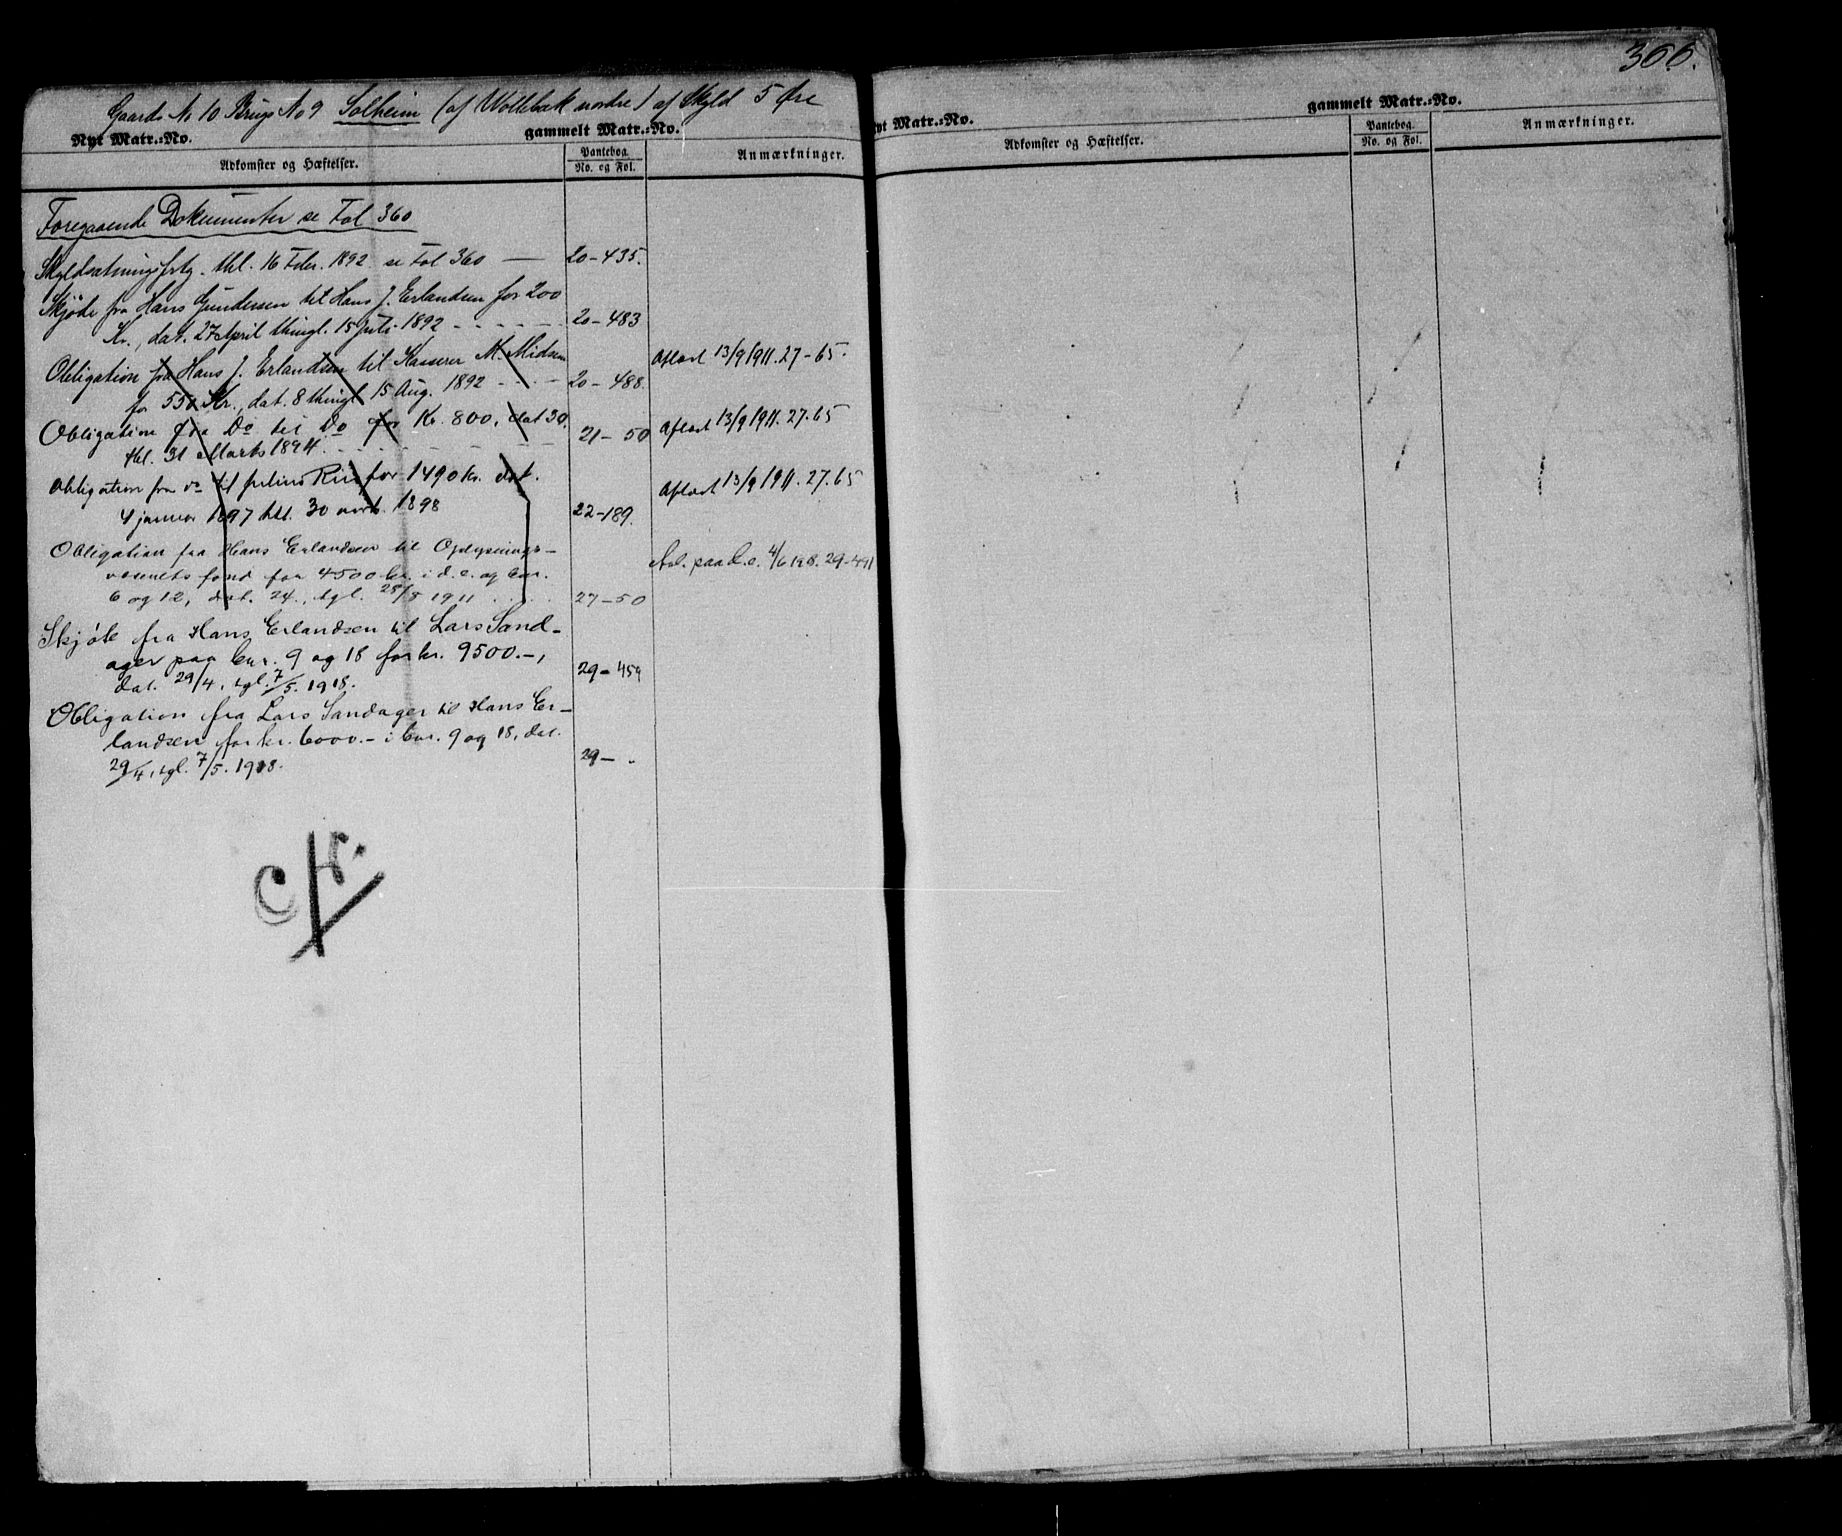 366.
Gaards No 10 Brugs No 9 Solheim (af Woldbæk nordre) af Skyld 5 Øre
Nyt Matr.=No. gammelt Matr.=No.
Adkomster og Hæftelser. Pantebog. No. og Fol. Anmærkninger.
Foregaaende Dokumenter se Fol 360
Skyldsætningsfrtg. thl. 16 Febr. 1892 se Fol 360 — 20-435.
Skjøde fra Hans Gundersen til Hans J. Erlandsen for 200
Kr., dat. 27 April thingl. 15 Juli 1892 - - - - - 20-483
Obligation fra Hans J. Erlandsen til Kasserer M. Midsem Aflæst 13/9 1911. 27-65.
for 550 Kr., dat. 8 thingl 15 Aug. 1892 - - - - 20-488.
Obligation fra Do til Do for Kr. 800, dat 30. Aflæst 13/9 1911. 27.65
thl. 31 Marts 1894. - - - - - - - 21-50
Obligation fra do til Julius Riis for 1490 Kr. dat. Aflæst 13/9 1911. 27.65
4 januar 1897 thl. 30 1898 22-189.
Obligation fra Hans Erlandsen til Oplysnings- Avl. paa d.e. 4/6 1918. 29-491
vesenets fond for 4500 kr. i d.e. og bnr.
6 og 12, dat. 24., tgl. 28/8 1911 . . . . 27-50
Skjøte fra Hans Erlandsen til Lars Sand-
ager paa bnr. 9 og 18 for kr. 9500.-,
dat. 29/4, tgl. 7/5. 1918. 29-459
Obligation fra Lars Sandager til Hans Er-
landsen for kr. 6000.- i bnr. 9 og 18, dat.
29/4, tgl. 7/5. 1918. 29- "
Nyt Matr.=No. gammelt Matr.=No.
Adkomster og Hæftelser. Pantebog. No. og Fol. Anmærkninger.